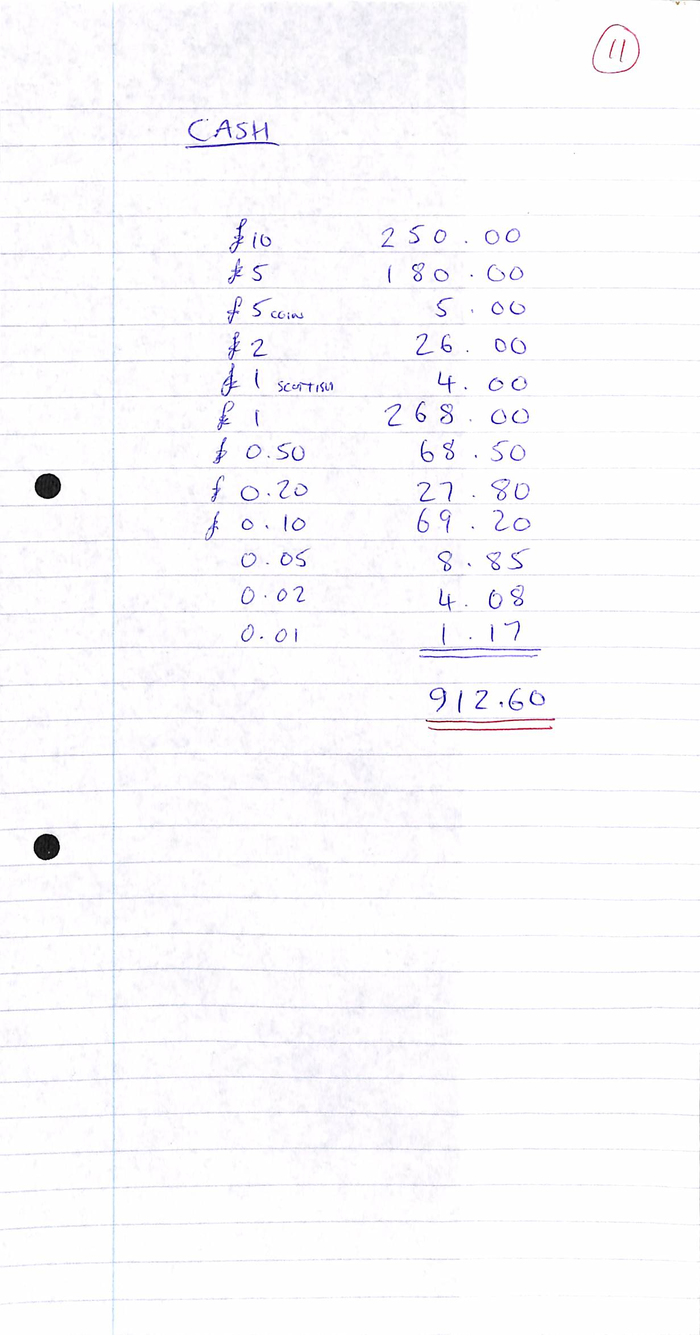 11
CASH
£10 250.00
£5 180.00
£5 COIN 5.00
£2 26.00
£1 SCOTTISH 4.00
£1 268.00
£0.50 68.50
£0.20 27.80
£0.10 69.20
0.05 8.85
0.02 4.08
0.01 1.17
912.60